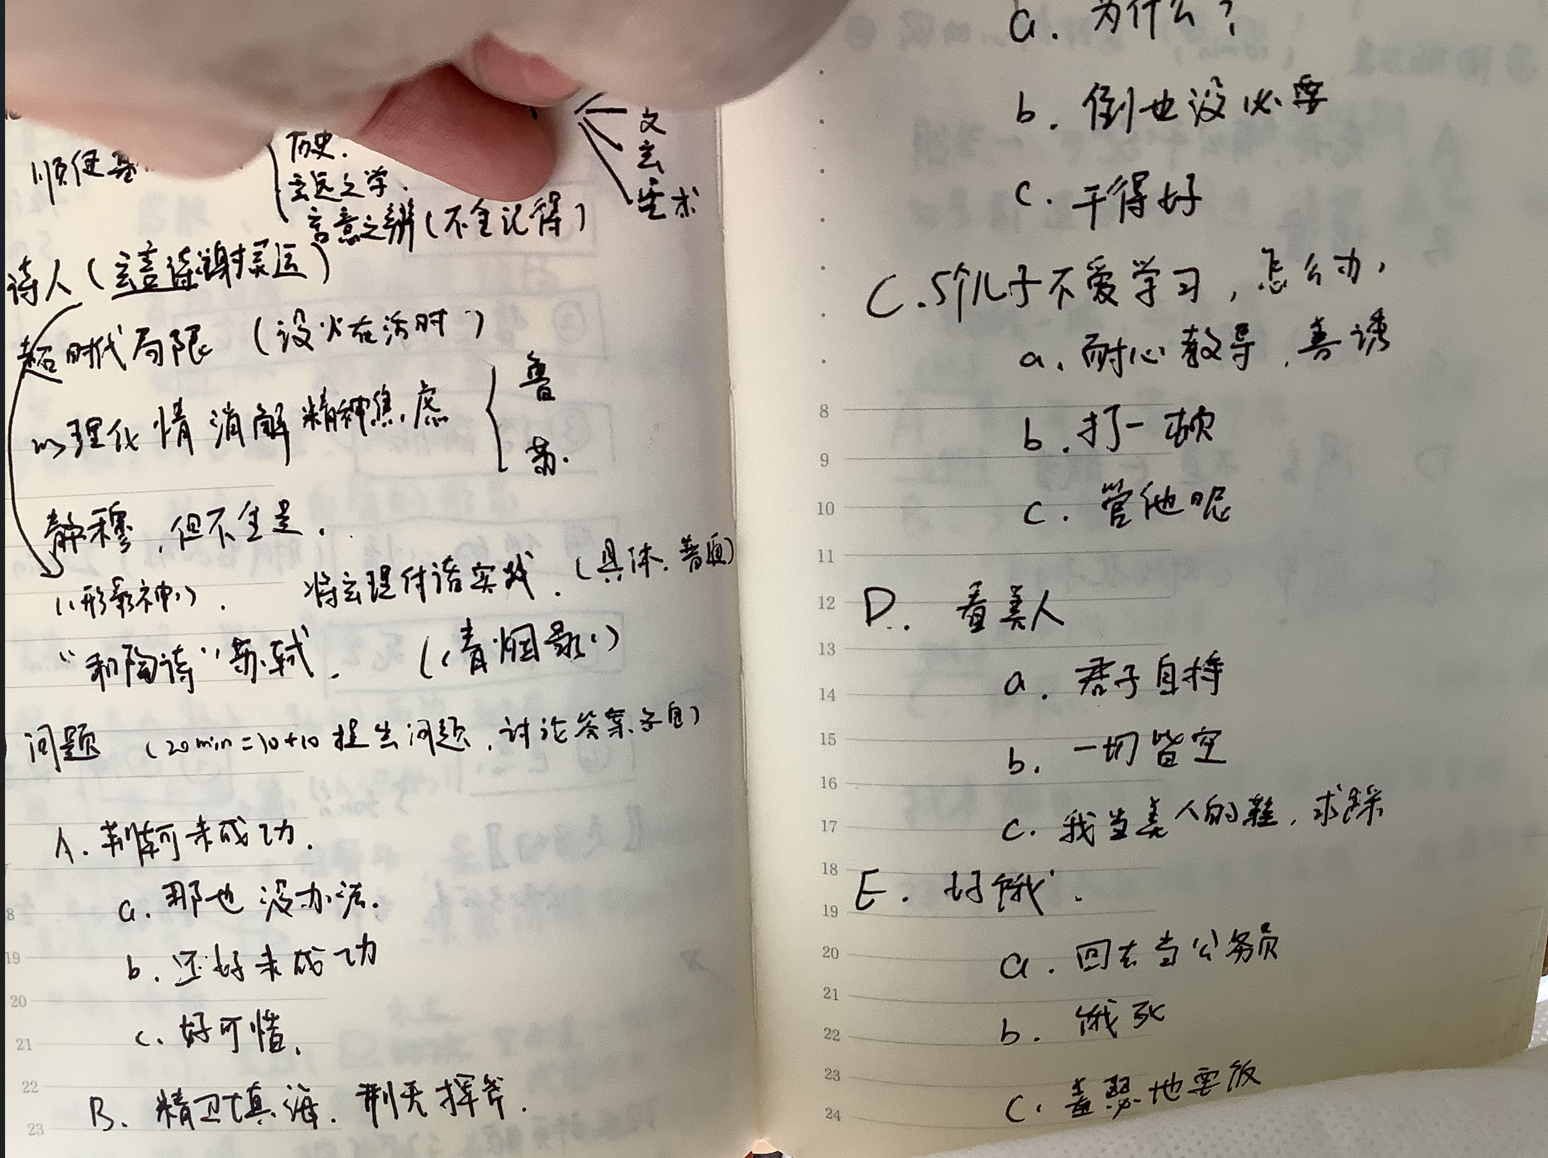 文
历史.
玄
顺便
玄远之学.
言意之辨(不全记得)
诗人(玄言诗谢灵运)
超时代局限 (设火在活时)
鲁
以理化情 消解精神焦虑
苏.
静穆,但不全是.
《形影神》. 将玄理付诸实践. (具体.普通)
“和陶诗”苏轼. (《青烟录》)
问题 (20min=10+10 提出问题,讨论答案)
A. 荆轲未成功.
a. 那也没办法.
b. 还好未成功
c. 好可惜.
B. 精卫填海. 刑天挥斧.
a. 为什么?
b. 倒也没必要
c. 干得好
C. 5个儿子不爱学习, 怎么办,
a. 耐心教导, 善诱
b. 打一顿
c. 管他呢
D. 看美人
a. 君子自持
b. 一切皆空
c. 我当美人的鞋, 求踩
E. 好饿.
a. 回去当公务员
b. 饿死
c. 羞涩地要饭
8
9
10
11
12
13
14
15
16
17
18
19
20
21
22
23
24
8
19
20
21
22
23